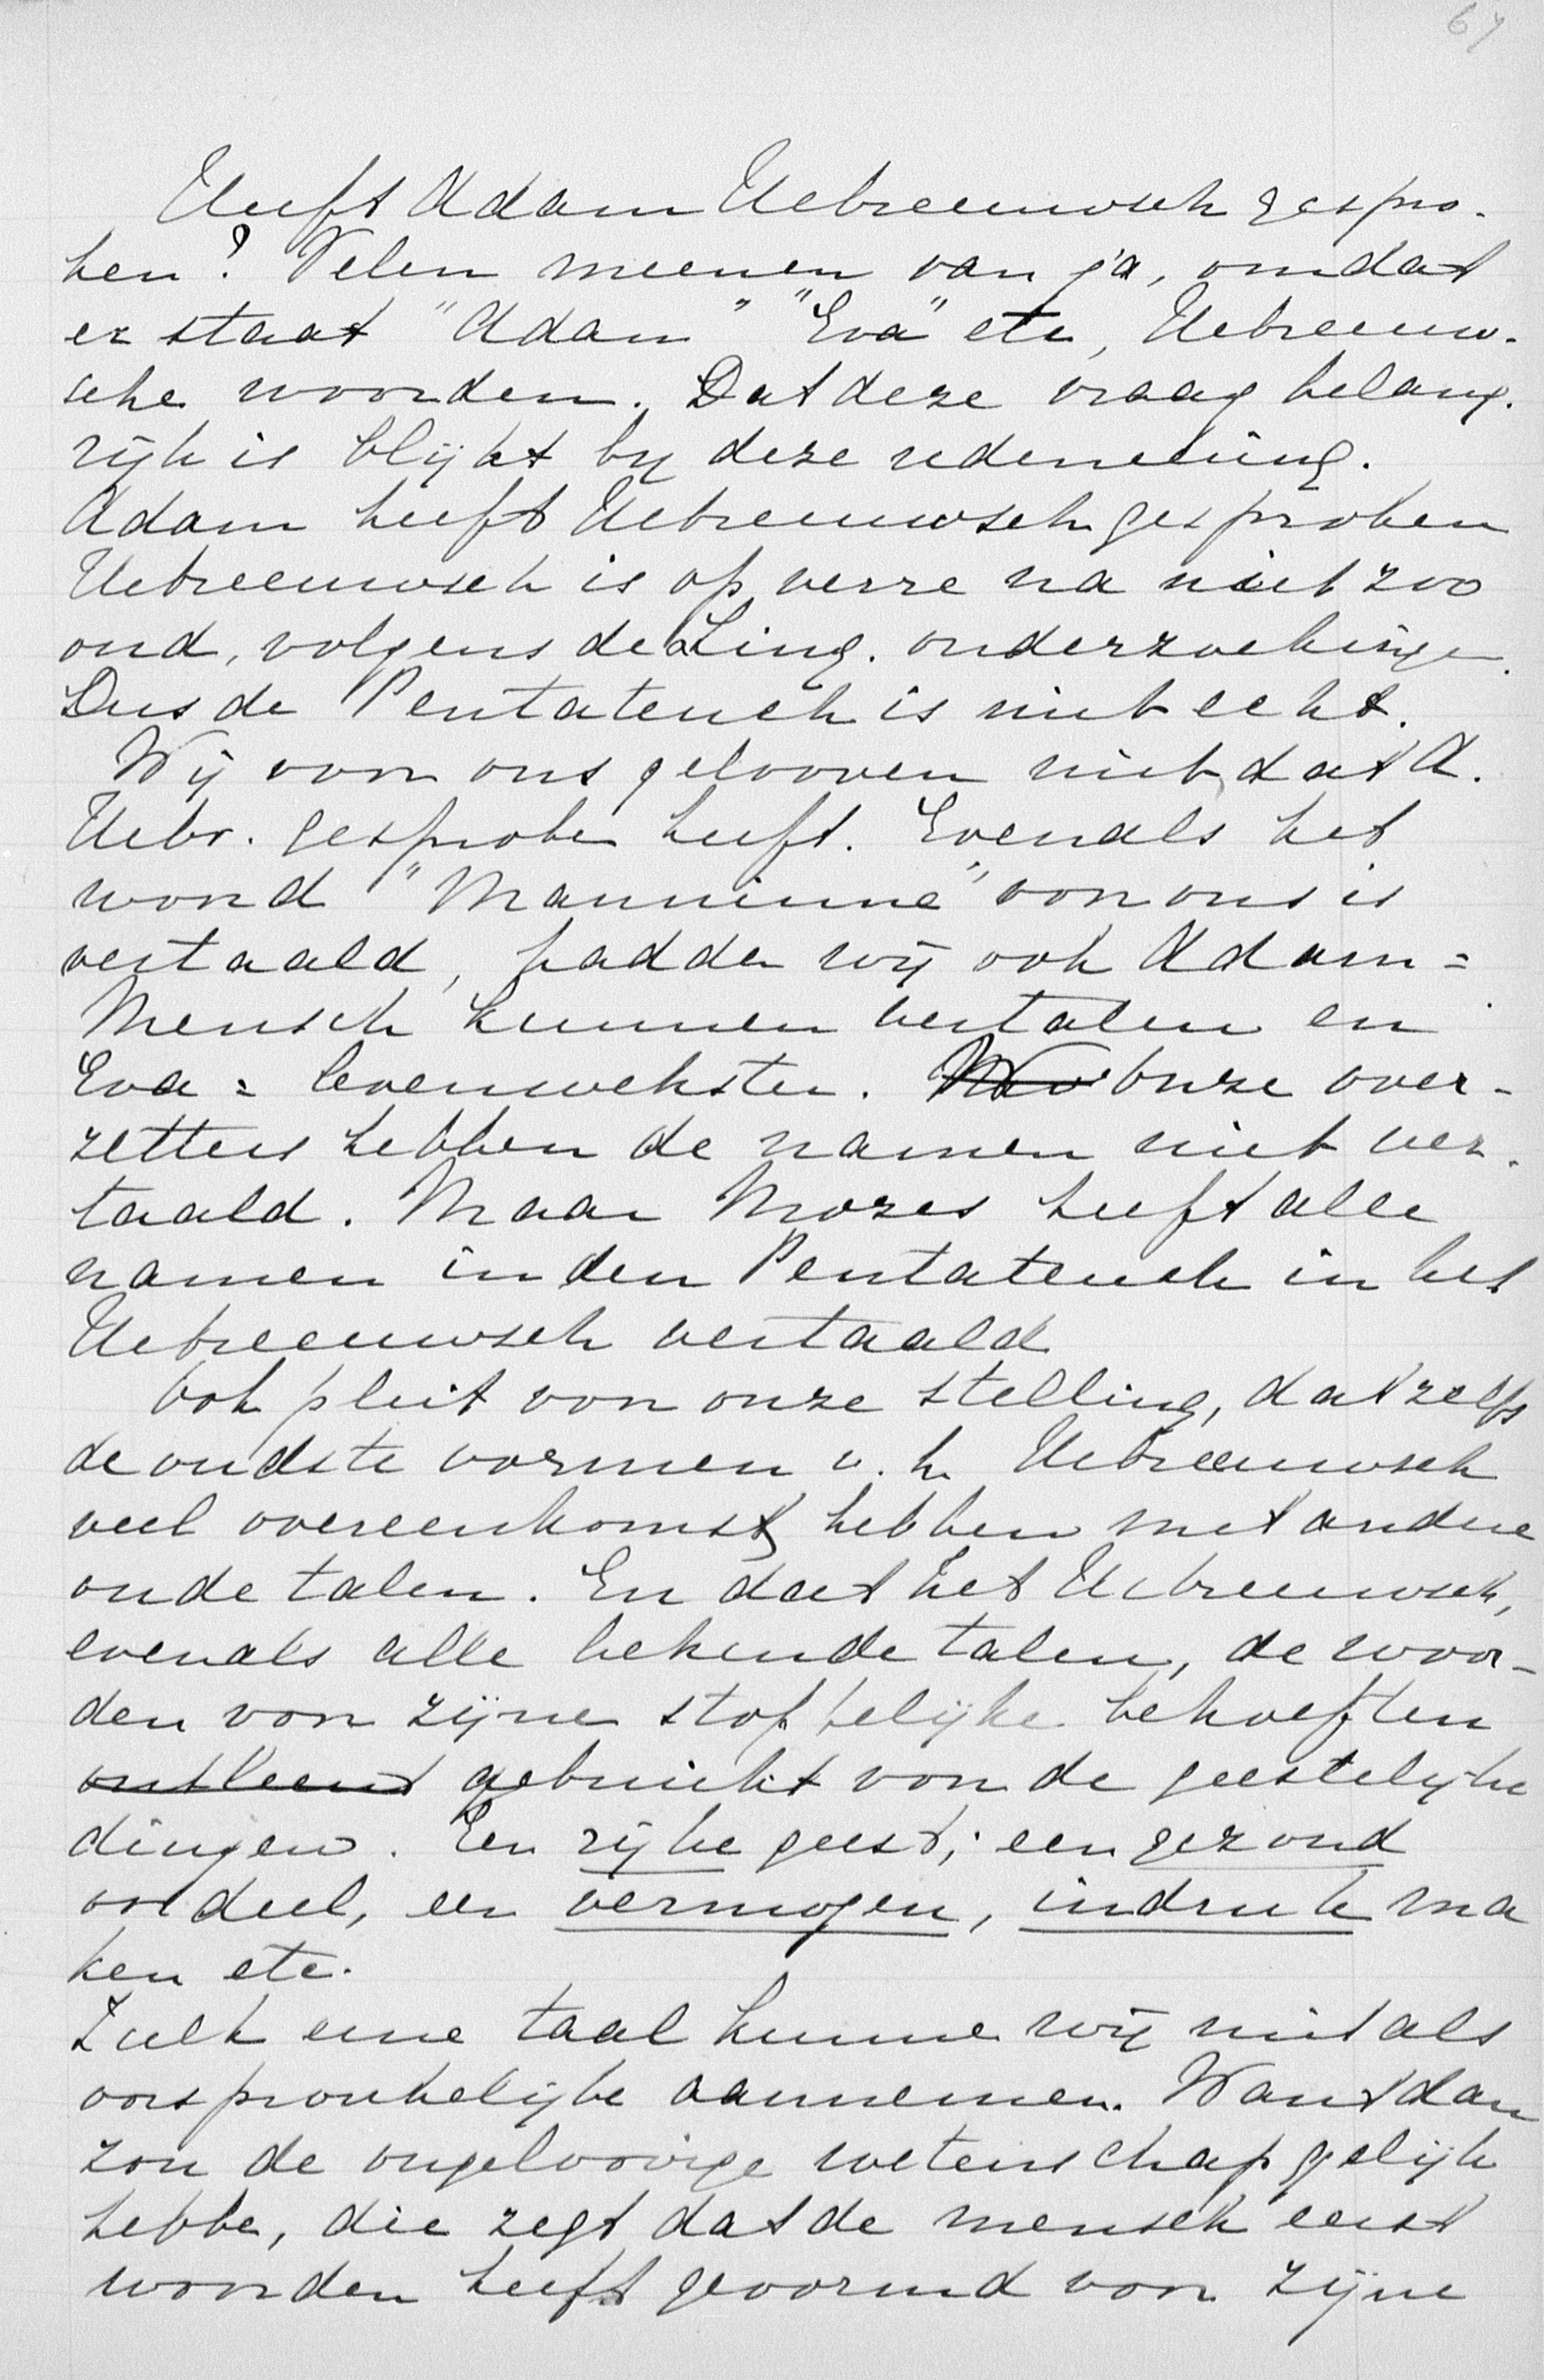 67
Heeft Adam Hebreeuwsch gespro-
ken? Velen meenen van ja, omdat
er staat "Adam" "Eva" etc, Hebreeuw-
sche woorden. Dat deze vraag belang-
rijk is blijkt by deze redeneering.
Adam heeft Hebreeuwsch gesproken
Hebreeuwsch is op verre na niet zoo
oud, volgens de Ling. onderzoekingen.
Dus de Pentateuch is niet echt.
Wij voor ons gelooven niet dat A.
Hebr. gesproken heeft. Evenals het
woord "Manninne" voor ons is
vertaald, hadden wij ook Adam =
Mensch kunnen vertalen en
Eva = levenwekster. Onze over-
zetters hebben de namen niet ver-
taald. Maar Mozes heeft alle
namen in den Pentateuch in het
Hebreeuwsch vertaald
Ook pleit voor onze stelling, dat zelfs
de oudste vormen v. h. Hebreeuwsch
veel overeenkomst hebben met andere
oude talen. En dat het Hebreeuwsch,
evenals alle bekende talen, de woor-
den voor zijne stoffelijke behoeften
ontleend gebruikt voor de geestelijke
dingen. Een rijke geest; een gezond
oordeel, een vermogen, indruk ma
ken etc.
Zulk eene taal kunnen wij niet als
oorspronkelijke aannemen. Want dan
zou de ongeloovige wetenschap gelijk
hebben, die zegt dat de mensch eerst
woorden heeft gevormd voor zijne